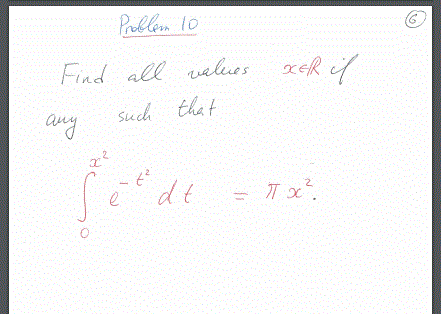 Problem 10
6
Find all values x∈ℝ if
any such that
∫₀^{x²} e^{-t²} dt = π x².